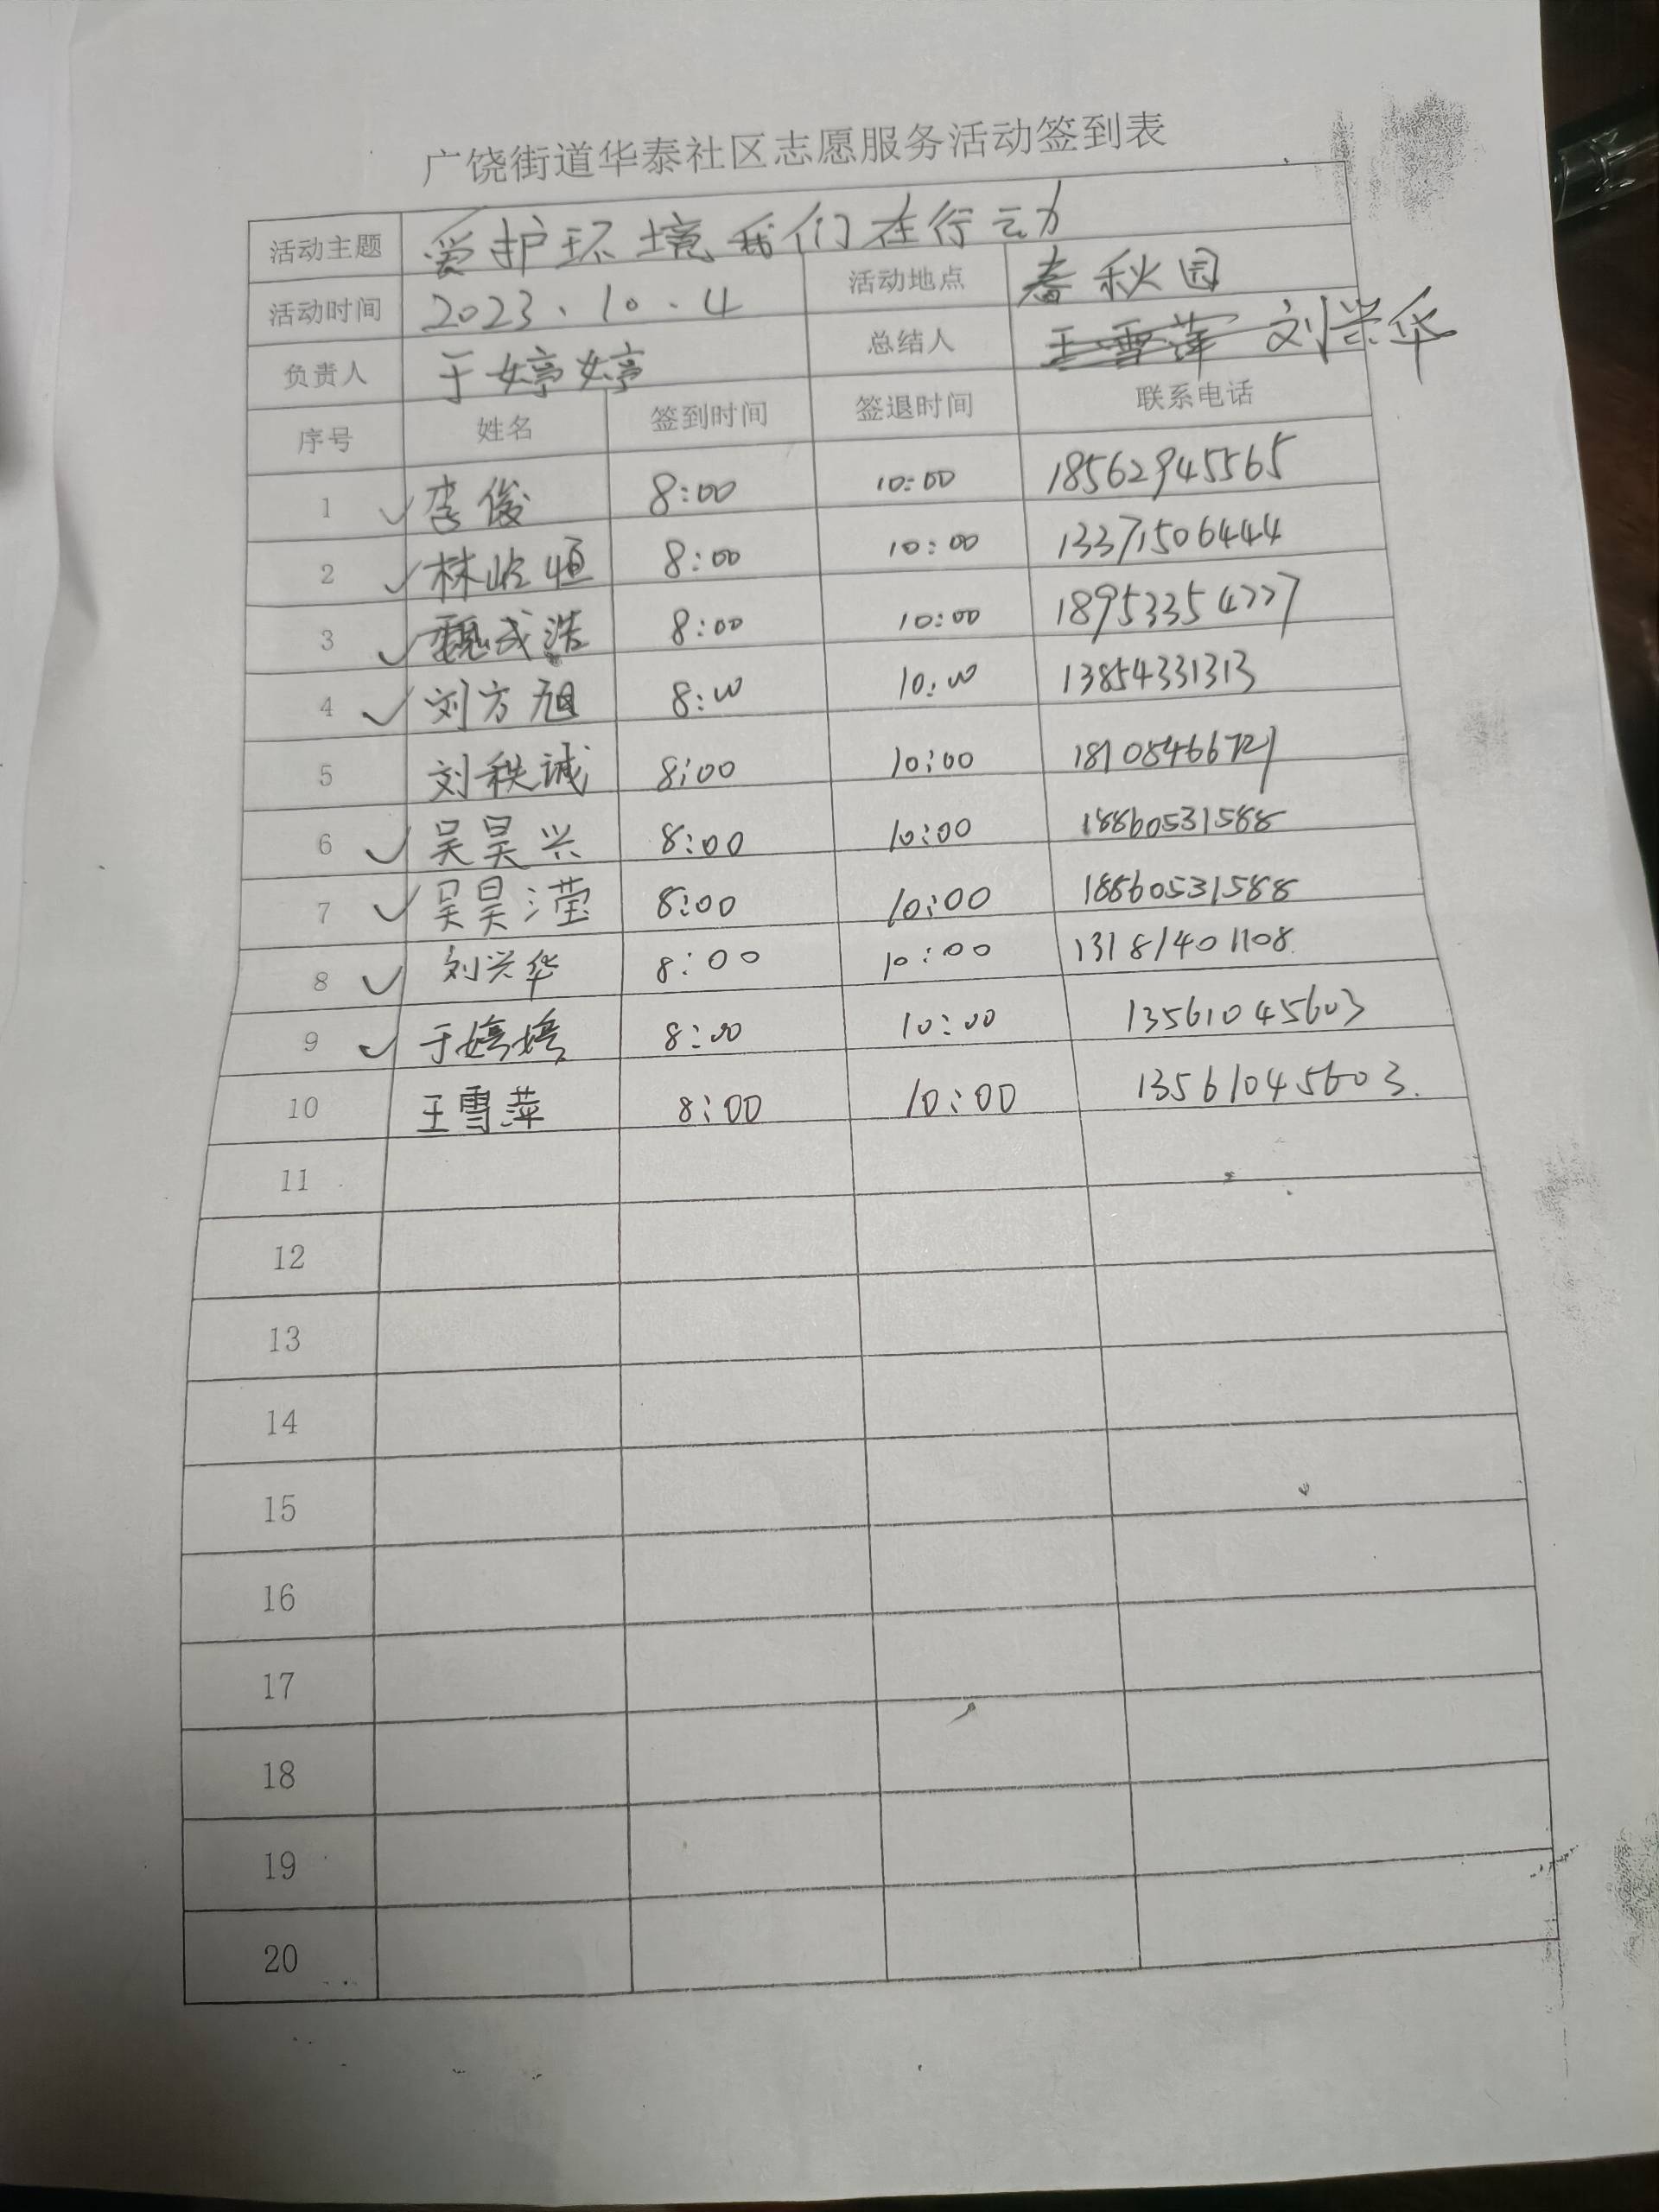 广饶街道华泰社区志愿服务活动签到表
活动主题 爱护环境我们在行动
活动时间 2023.10.4 活动地点 春秋园
负责人 于婷婷 总结人 王雪萍 刘兴华
序号 姓名 签到时间 签退时间 联系电话
1 李俊 8:00 10:00 18562945565
2 林屹恒 8:00 10:00 13371506444
3 魏成浩 8:00 10:00 18953354777
4 刘方旭 8:00 10:00 13854331313
5 刘秩诚 8:00 10:00 18105466721
6 吴昊兴 8:00 10:00 18860531588
7 吴昊滢 8:00 10:00 18860531588
8 刘兴华 8:00 10:00 13181401108
9 于婷婷 8:00 10:00 13561045603
10 王雪萍 8:00 10:00 13561045603
11
12
13
14
15
16
17
18
19
20